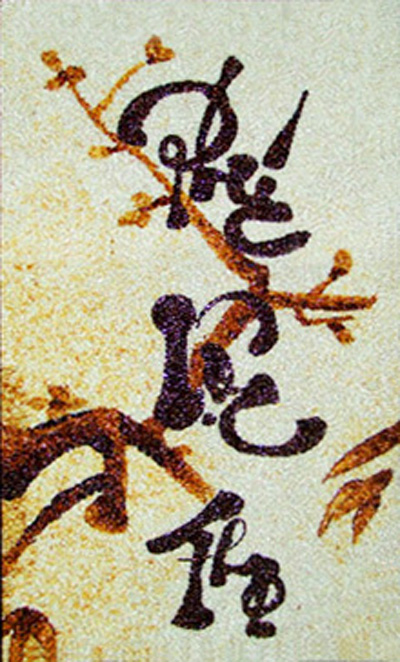 Phúc
Lộc
Thọ